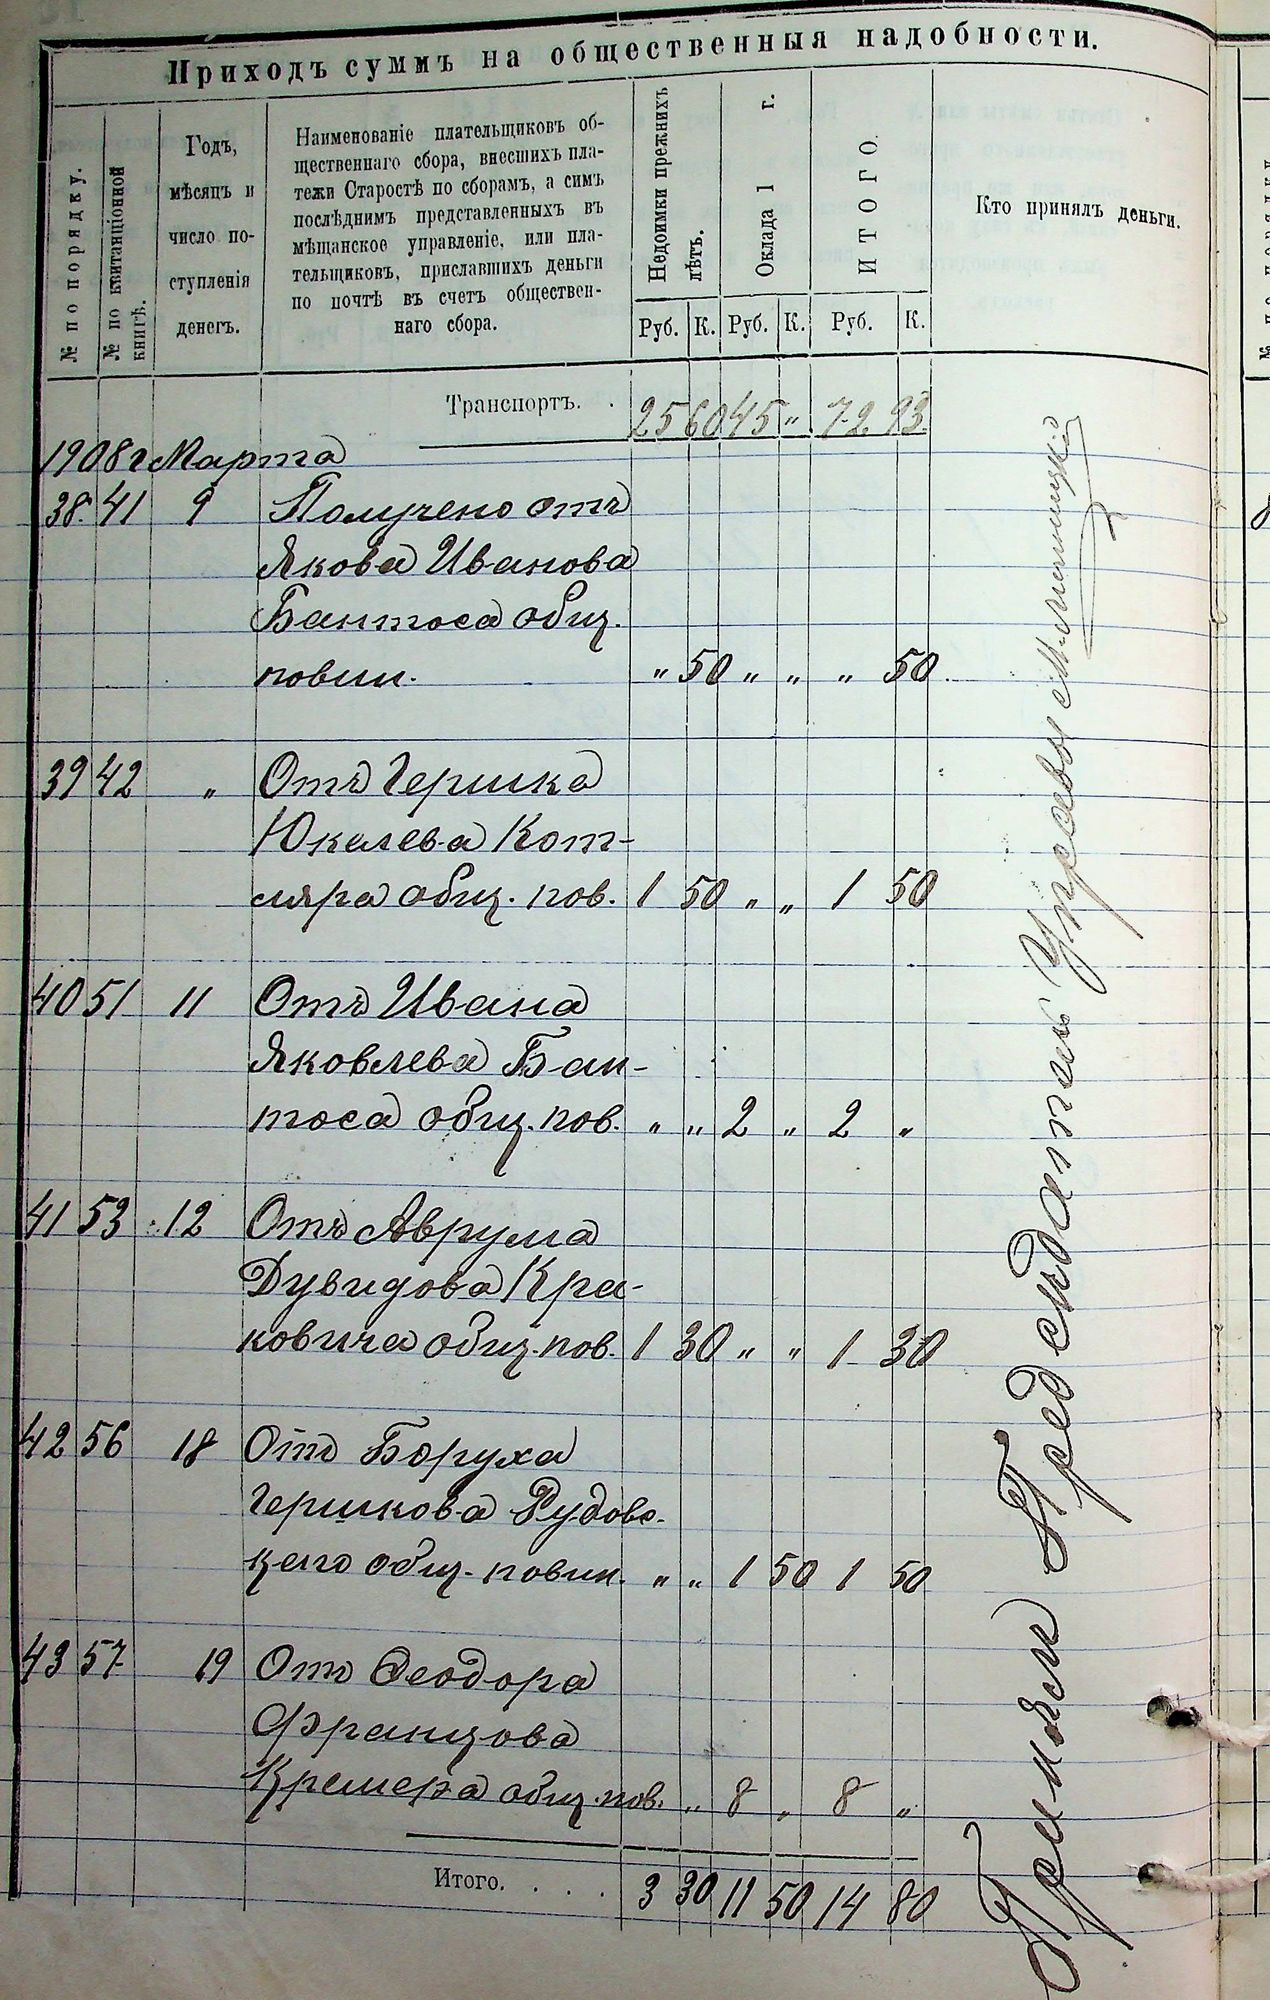 Приходъ суммъ на общественныя надобности.
№ по порядку.
№ по квитанціонной
книгѣ.
Годъ,
мѣсяцъ и
число по-
ступленія
денегъ.
Наименованіе плательщиковъ об-
щественнаго сбора, внесшихъ пла-
тежи Старостѣ по сборамъ, а симъ
послѣднимъ представленныхъ въ
мѣщанское управленіе, или пла-
тельщиковъ, приславшихъ деньги
по почтѣ въ счетъ обществен-
наго сбора.
Недоимки прежнихъ
лѣтъ.
Оклада 1 г.
ИТОГО.
Кто принялъ деньги.
Руб. К. Руб. К. Руб. К.
Транспортъ. . 25 60 45 „ 72 93.
1908 г Марта
38. 41 9 Получено отъ
Якова Иванова
Бантоса общ.
повин. „ 50 „ „ „ 50
39 42 „ Отъ Гершка
Юкелева Кот-
ляра общ. пов. 1 50 „ „ 1 50
40 51 11 Отъ Ивана
Яковлева Бан-
тоса общ. пов. „ „ 2 „ 2 „
41 53 12 Отъ Аврума
Дувидова Кра-
ковича общ. пов. 1 30 „ „ 1 30
42 56 18 Отъ Боруха
Гершкова Рудовс-
каго общ. повин. „ „ 1 50 1 50
43 57 19 Отъ Ѳеодора
Францова
Кремера общ. пов. „ 8 „ 8 „
Итого. . . . 3 30 11 50 14 80
Принялъ Предсѣдатель Управы